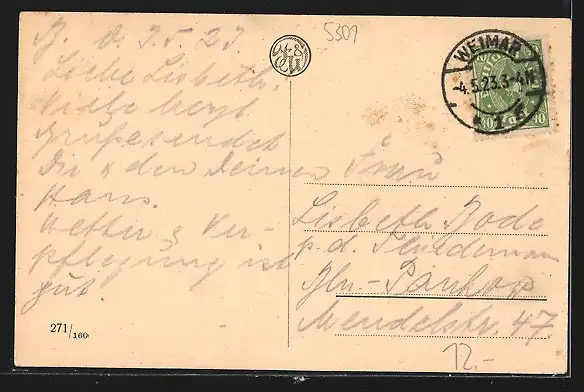 B. d. 3.5.23.
Liebe Lisbeth.
Viele herzl.
Grüße sendet
Dir & den Deinen
Hans.
Wetter & Ver-
pflegung ist
gut.
271/160
5301
WEIMAR
4.5.23.3-4N
40 40
Frau
Lisbeth Bode
p. d.
Bln.-Pankow
Mendelstr. 47.
12.-